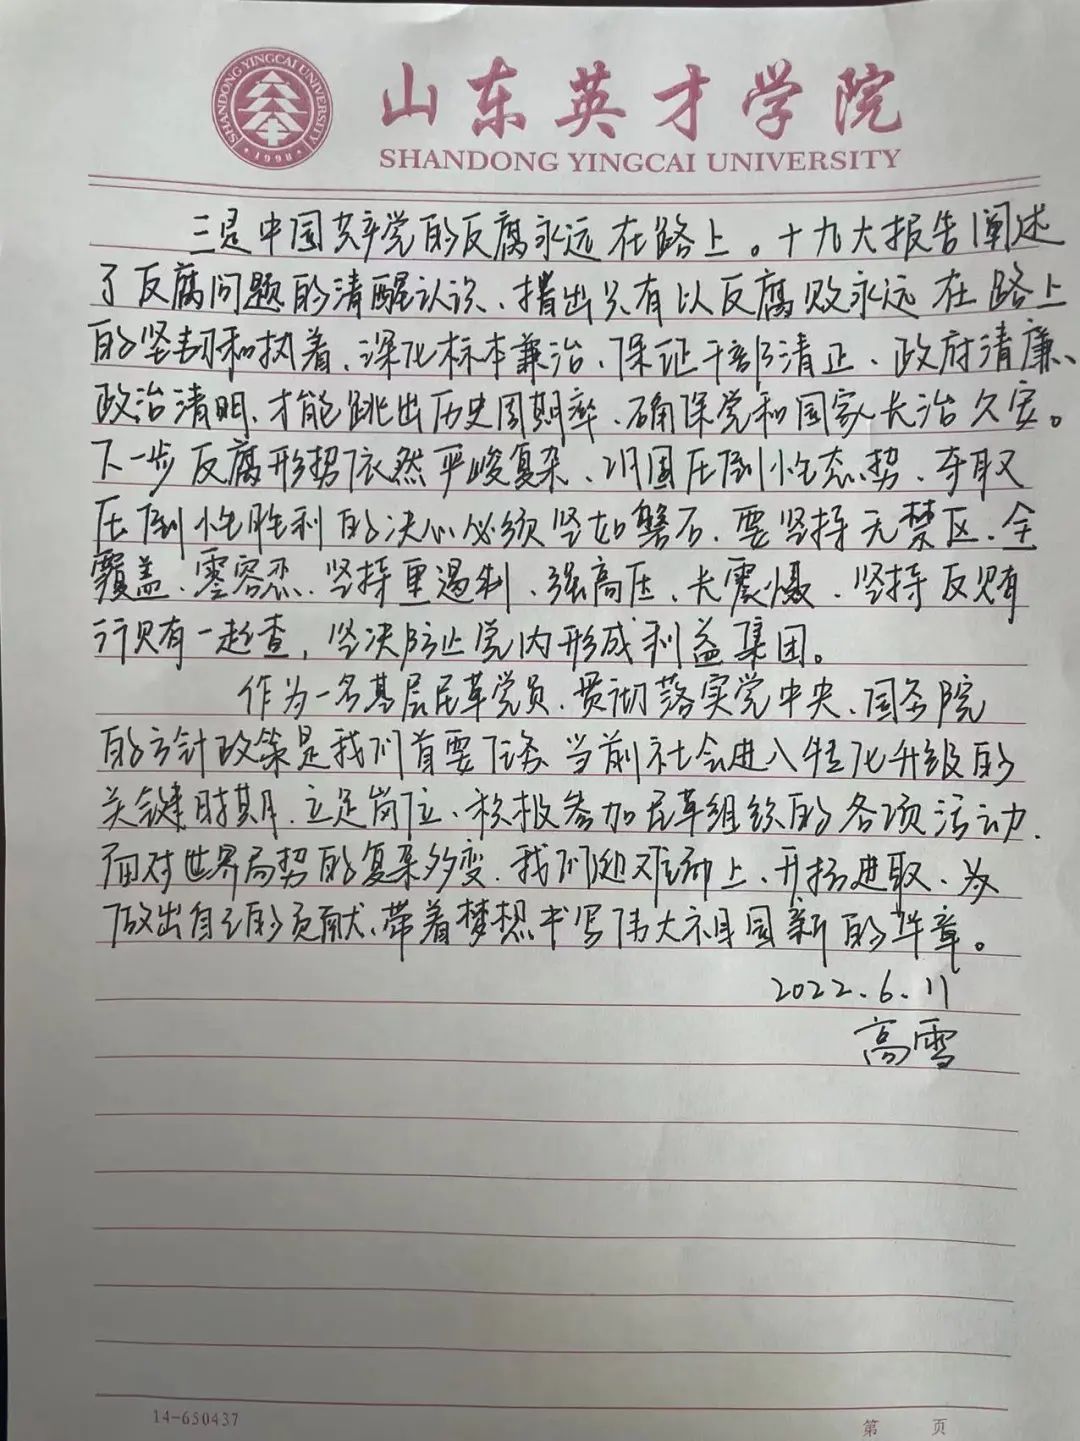 SHANDONG YINGCAI UNIVERSITY
1998
山东英才学院
SHANDONG YINGCAI UNIVERSITY
三是中国共产党的反腐永远在路上。十九大报告阐述
了反腐问题的清醒认识、指出只有以反腐败永远在路上
的坚韧和执着、深化标本兼治、保证干部清正、政府清廉、
政治清明、才能跳出历史周期率、确保党和国家长治久安。
下一步反腐形势依然严峻复杂、巩固压倒性态势、夺取
压倒性胜利的决心必须坚如磐石、要坚持无禁区、全
覆盖、零容忍、坚持重遏制、强高压、长震慑、坚持反贿
行贿一起查，坚决防止党内形成利益集团。
作为一名基层民革党员、贯彻落实党中央、国务院
的方针政策是我们首要任务、当前社会进入转化升级的
关键时期、立足岗位、积极参加民革组织的各项活动、
面对世界局势的复杂多变、我们迎难而上、开拓进取、为
做出自己的贡献、带着梦想书写伟大祖国新的华章。
2022.6.11
高雪
14-650437
第 页